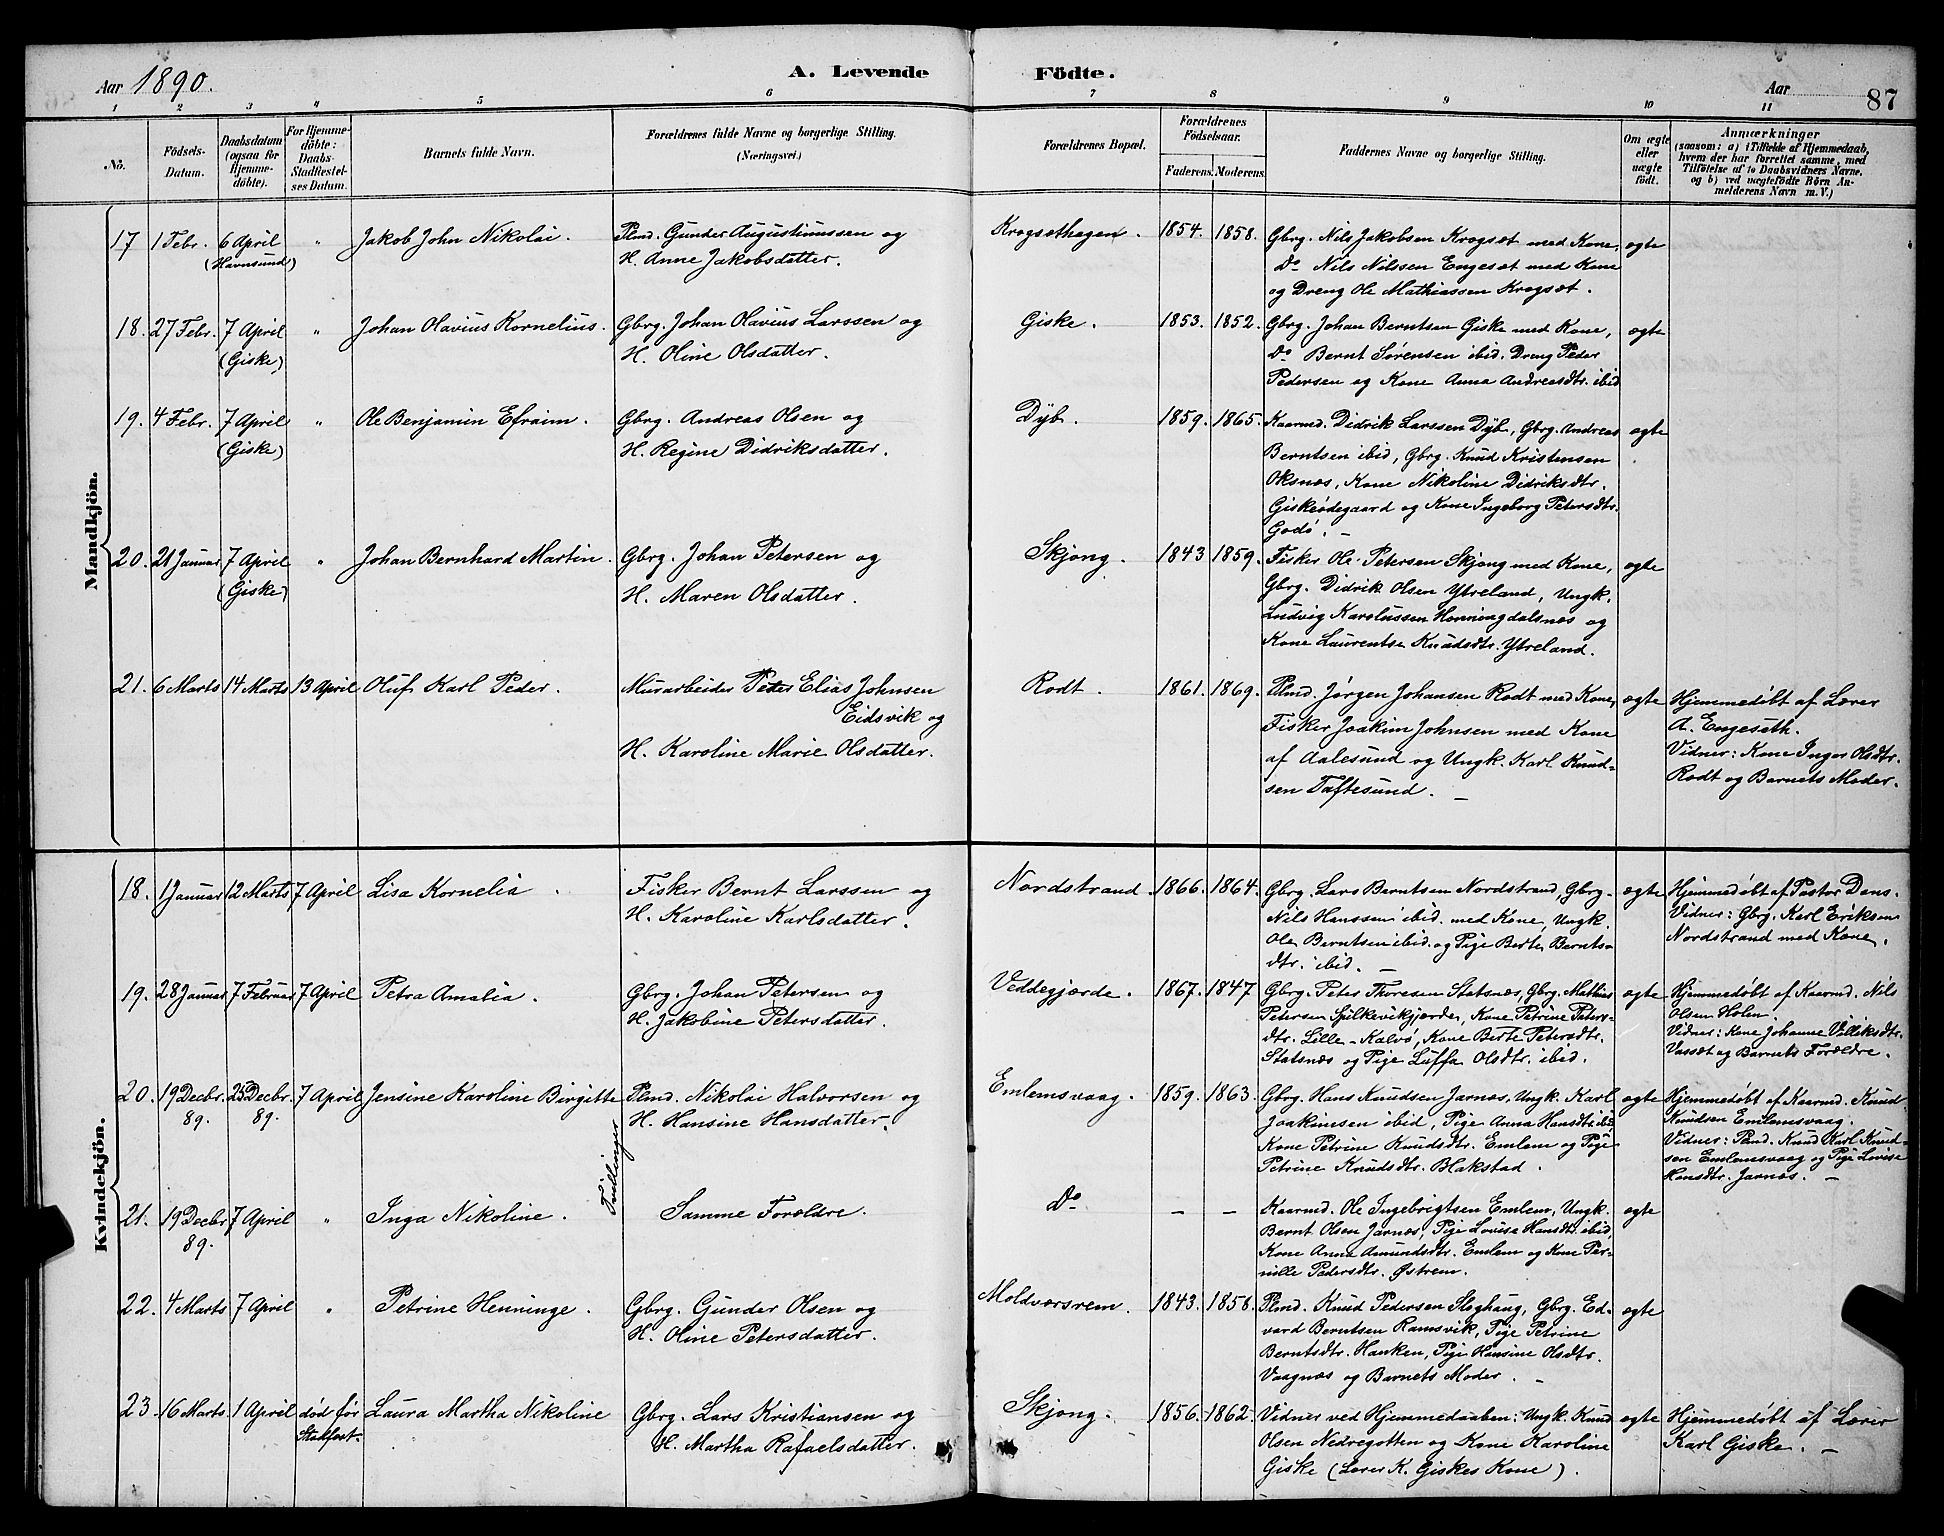 Aar 1890.
A. Levende Födte.
Aar
87
1 2 3 4 5 6 7 8 9 10 11
No.
Födsels-
Datum.
Daabsdatum
(ogsaa for
Hjemme-
döbte).
For Hjemme-
döbte:
Daabs-
Stadfæstel-
ses Datum.
Barnets fulde Navn.
Forældrenes fulde Navne og borgerlige Stilling.
(Næringsvei.)
Forældrenes Bopæl.
Forældrenes
Födselsaar.
Faderens. Moderens.
Faddernes Navne og borgerlige Stilling.
Om ægte
eller
uægte
födt.
Anmærkninger
(saasom: a) i Tilfælde af Hjemmedaab,
hvem der har forrettet samme, med
Tilföielse af to Daabsvidners Navne,
og b) ved uægtefödte Börn An-
melderens Navn m.V.)
Mandkjön.
17 1 Febr. 6 April " Jakob John Nikolai. Plmd. Gunder Augustinussen og Krogsethagen. 1854. 1858. Gbrg. Nils Jakobsen Krogsæt med Kone, ægte
(Havnsund) H. Anne Jakobsdatter. Do Nils Nilssen Engeset med Kone
og Dreng Ole Mathiassen Krogsæt.
18. 27 Febr. 7 April " Johan Olavius Kornelius. Gbrg. Johan Olavius Larssen og Giske. 1853. 1852. Gbrg. Johan Berntsen Giske med Kone, ægte
(Giske) H. Oline Olsdatter. Do Bernt Sørensen ibid. Dreng Peder
Pedersen og Kone Anna Andreasdtr. ibid
19. 4 Febr. 7 April " Ole Benjamin Efraim. Gbrg. Andreas Olsen og Dyb. 1859. 1865. Kaarmd. Didrik Larssen Dyb, Gbrg. Andreas ægte
(Giske) H. Regine Didriksdatter. Berntsen ibid, Gbrg. Knud Kristensen
Oksnæs, Kone Nikoline Didriksdtr.
Giskeødegaard og Kone Ingeborg Petersdtr.
Godø. –
20. 21 Januar 7 April " Johan Bernhard Martin. Gbrg. Johan Petersen og Skjong. 1843 1859. Fisker Ole Petersen Skjong med Kone, ægte
(Giske) H. Maren Olsdatter. Gbrg. Didrik Olsen Ytreland, Ungk.
Ludvig Karolussen Honningdalsnæs og
Kone Laurentse Knudsdtr. Ytreland.
21. 6 Marts 14 Marts 13 April Oluf Karl Peder. Murarbeider Peter Elias Johnsen Rodt. 1861. 1869. Plmd. Jørgen Johansen Rodt med Kone, ægte Hjemmedøbt af Lærer
Eidsvik og Fisker Joakim Johnsen med Kone A. Engeseth.
H. Karoline Marie Olsdatter. af Aalesund og Ungk. Karl Knud- Vidner: Kone Inger Olsdtr.
sen Taftesund. – Rodt og Barnets Moder.
Kvindekjön.
18. 1 Januar 12 Marts 7 April Lisa Kornelia. Fisker Bernt Larssen og Nordstrand. 1866. 1864. Gbrg. Lars Berntsen Nordstrand, Gbrg. ægte Hjemmedøbt af Pastor Dons.
H. Karoline Karlsdatter. Nils Hanssen ibid. med Kone, Ungk. Vidner: Gbrg. Karl Eriksen
Ole Berntsen ibid. og Pige Berte Bernts- Nordstrand med Kone.
dtr. ibid. –
19. 28 Januar 7 Februar 7 April Petra Amalia. Gbrg. Johan Petersen og Veddegjærde. 1867. 1847 Gbrg. Peter Thoresen Statsnæs, Gbrg. Mathias ægte Hjemmedøbt af Kaarmd. Nils
H. Jakobine Petersdatter. Petersen Spilkevikgjerde, Kone Petrine Peters- Olsen Holen.
dtr. Lille-Kalvø, Kone Berte Petersdtr. Vidner: Kone Johanne Villiksdtr.
Statsnæs og Pige Luffa Olsdtr. ibid. Vassæt og Barnets Forældre.
20. 19 Decbr. 25 Decbr. 7 April Jensine Karoline Birgitte Plmd. Nikolai Halvorsen og Emlemsvaag. 1859. 1863. Gbrg. Hans Knudsen Jarnæs, Ungk. Karl ægte Hjemmedøbt af Kaarmd. Knud
89. 89. H. Hansine Hansdatter. Joakimsen ibid, Pige Anna Hansdtr. ibid, Knudsen Emlemsvaag.
Kone Petrine Knudsdtr. Emlem og Pige Vidner: Plmd. Knud Karl Knud-
Petrine Knudsdtr. Blakstad. sen Emlemsvaag og Pige Lovise
Hansdtr. Jarnæs. –
Tvillinger
21. 19 Decbr 7 April " Inga Nikoline. Samme Forældre. Do – – Kaarmd. Ole Ingebrigtsen Emlem, Ungk. ægte
89. Bernt Olsen Jarnæs, Pige Lovise Hansdtr. ibid,
Kone Anna Amundsdtr. Emlem og Kone Per-
nille Pedersdtr. Østrem.
22. 4 Marts 7 April " Petrine Henninge. Gbrg. Gunder Olsen og Moldværsrem. 1843. 1858. Plmd. Knud Pedersen Sloghaug, Gbrg. Ed- ægte
H. Oline Petersdatter. vard Berntsen Ramsvik, Pige Petrine
Berntsdtr. Hanken, Pige Hansine Olsdtr.
Vaagnæs og Barnets Moder. –
23. 16 Marts. 1 April død før Laura Martha Nikoline Gbrg. Lars Kristiansen og Skjong. 1856. 1862. Vidner ved Hjemmedaaben: Ungk. Knud ægte Hjemmedøbt af Lærer
Stadfæst. H. Martha Rafaelsdatter. Olsen Nedregotten og Kone Karoline Karl Giske. –
Giske (Lærer K. Giskes Kone).